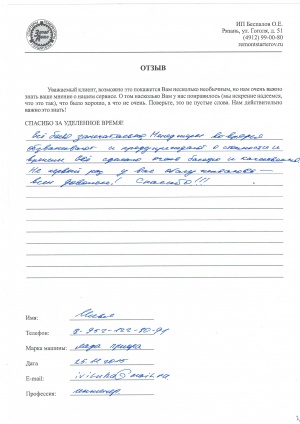 ИП Беспалов О.Е.
Рязань, ул. Гоголя, д. 51
(4912) 99-00-80
remontstarterov.ru
ОТЗЫВ
Уважаемый клиент, возможно это покажется Вам несколько необычным, но нам очень важно
знать ваше мнение о нашем сервисе. О том насколько Вам у нас понравилось (мы искренне надеемся,
что это так), что было хорошо, а что не очень. Поверьте, это не пустые слова. Нам действительно
важно это знать!
СПАСИБО ЗА УДЕЛЕННОЕ ВРЕМЯ!
Всё было замечательно Менеджеры вовремя
обзванивают и предупреждают о стоимости и
времени Всё сделано очень быстро и качественно
Не первый раз у вас обслуживаюсь —
всем доволен! Спасибо!!!
Имя:
Телефон: 8-952-122-80-91
Марка машины: Лада приора
Дата 25.11.2015
E-mail: @mail.ru
Профессия: инженер.